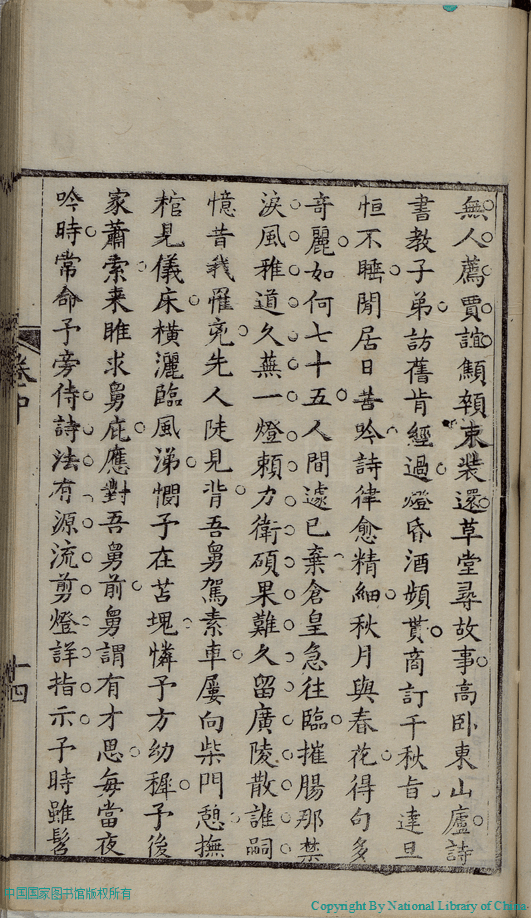 無人薦賈誼顦顇束裝還草堂尋故事高卧東山廬詩
書教子弟訪舊肯經過燈昏酒頻貰商訂千秋旨達旦
恒不睡閒居日苦吟詩律愈精細秋月與春花得句多
奇麗如何七十五人間遽已棄倉皇急往臨摧腸那禁
淚風雅道久蕪一燈賴力衛碩果難久留廣陵散誰嗣
憶昔我罹兇先人陡見背吾舅駕素車屢向柴門憩撫
棺見儀床橫灑臨風涕憫予在苫塊憐予方幼穉予後
家蕭索来雎求舅庇應對吾舅前舅謂有才思每當夜
吟時常命予旁侍詩法有源流剪燈詳指示予時雖髫
卷中
十四
中国国家图书馆版权所有
Copyright By National Library of China